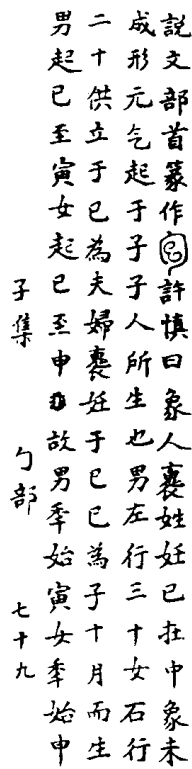 說文部首篆作許慎曰象人褢姓妊巳在中象未
成形元气起于子子人所生也男左行三十女石行
二十供立于巳為夫婦褢妊于巳巳為子十月而生
男起巳至寅女起巳至申故男秊始寅女秊始申
子集 勹部 七十九